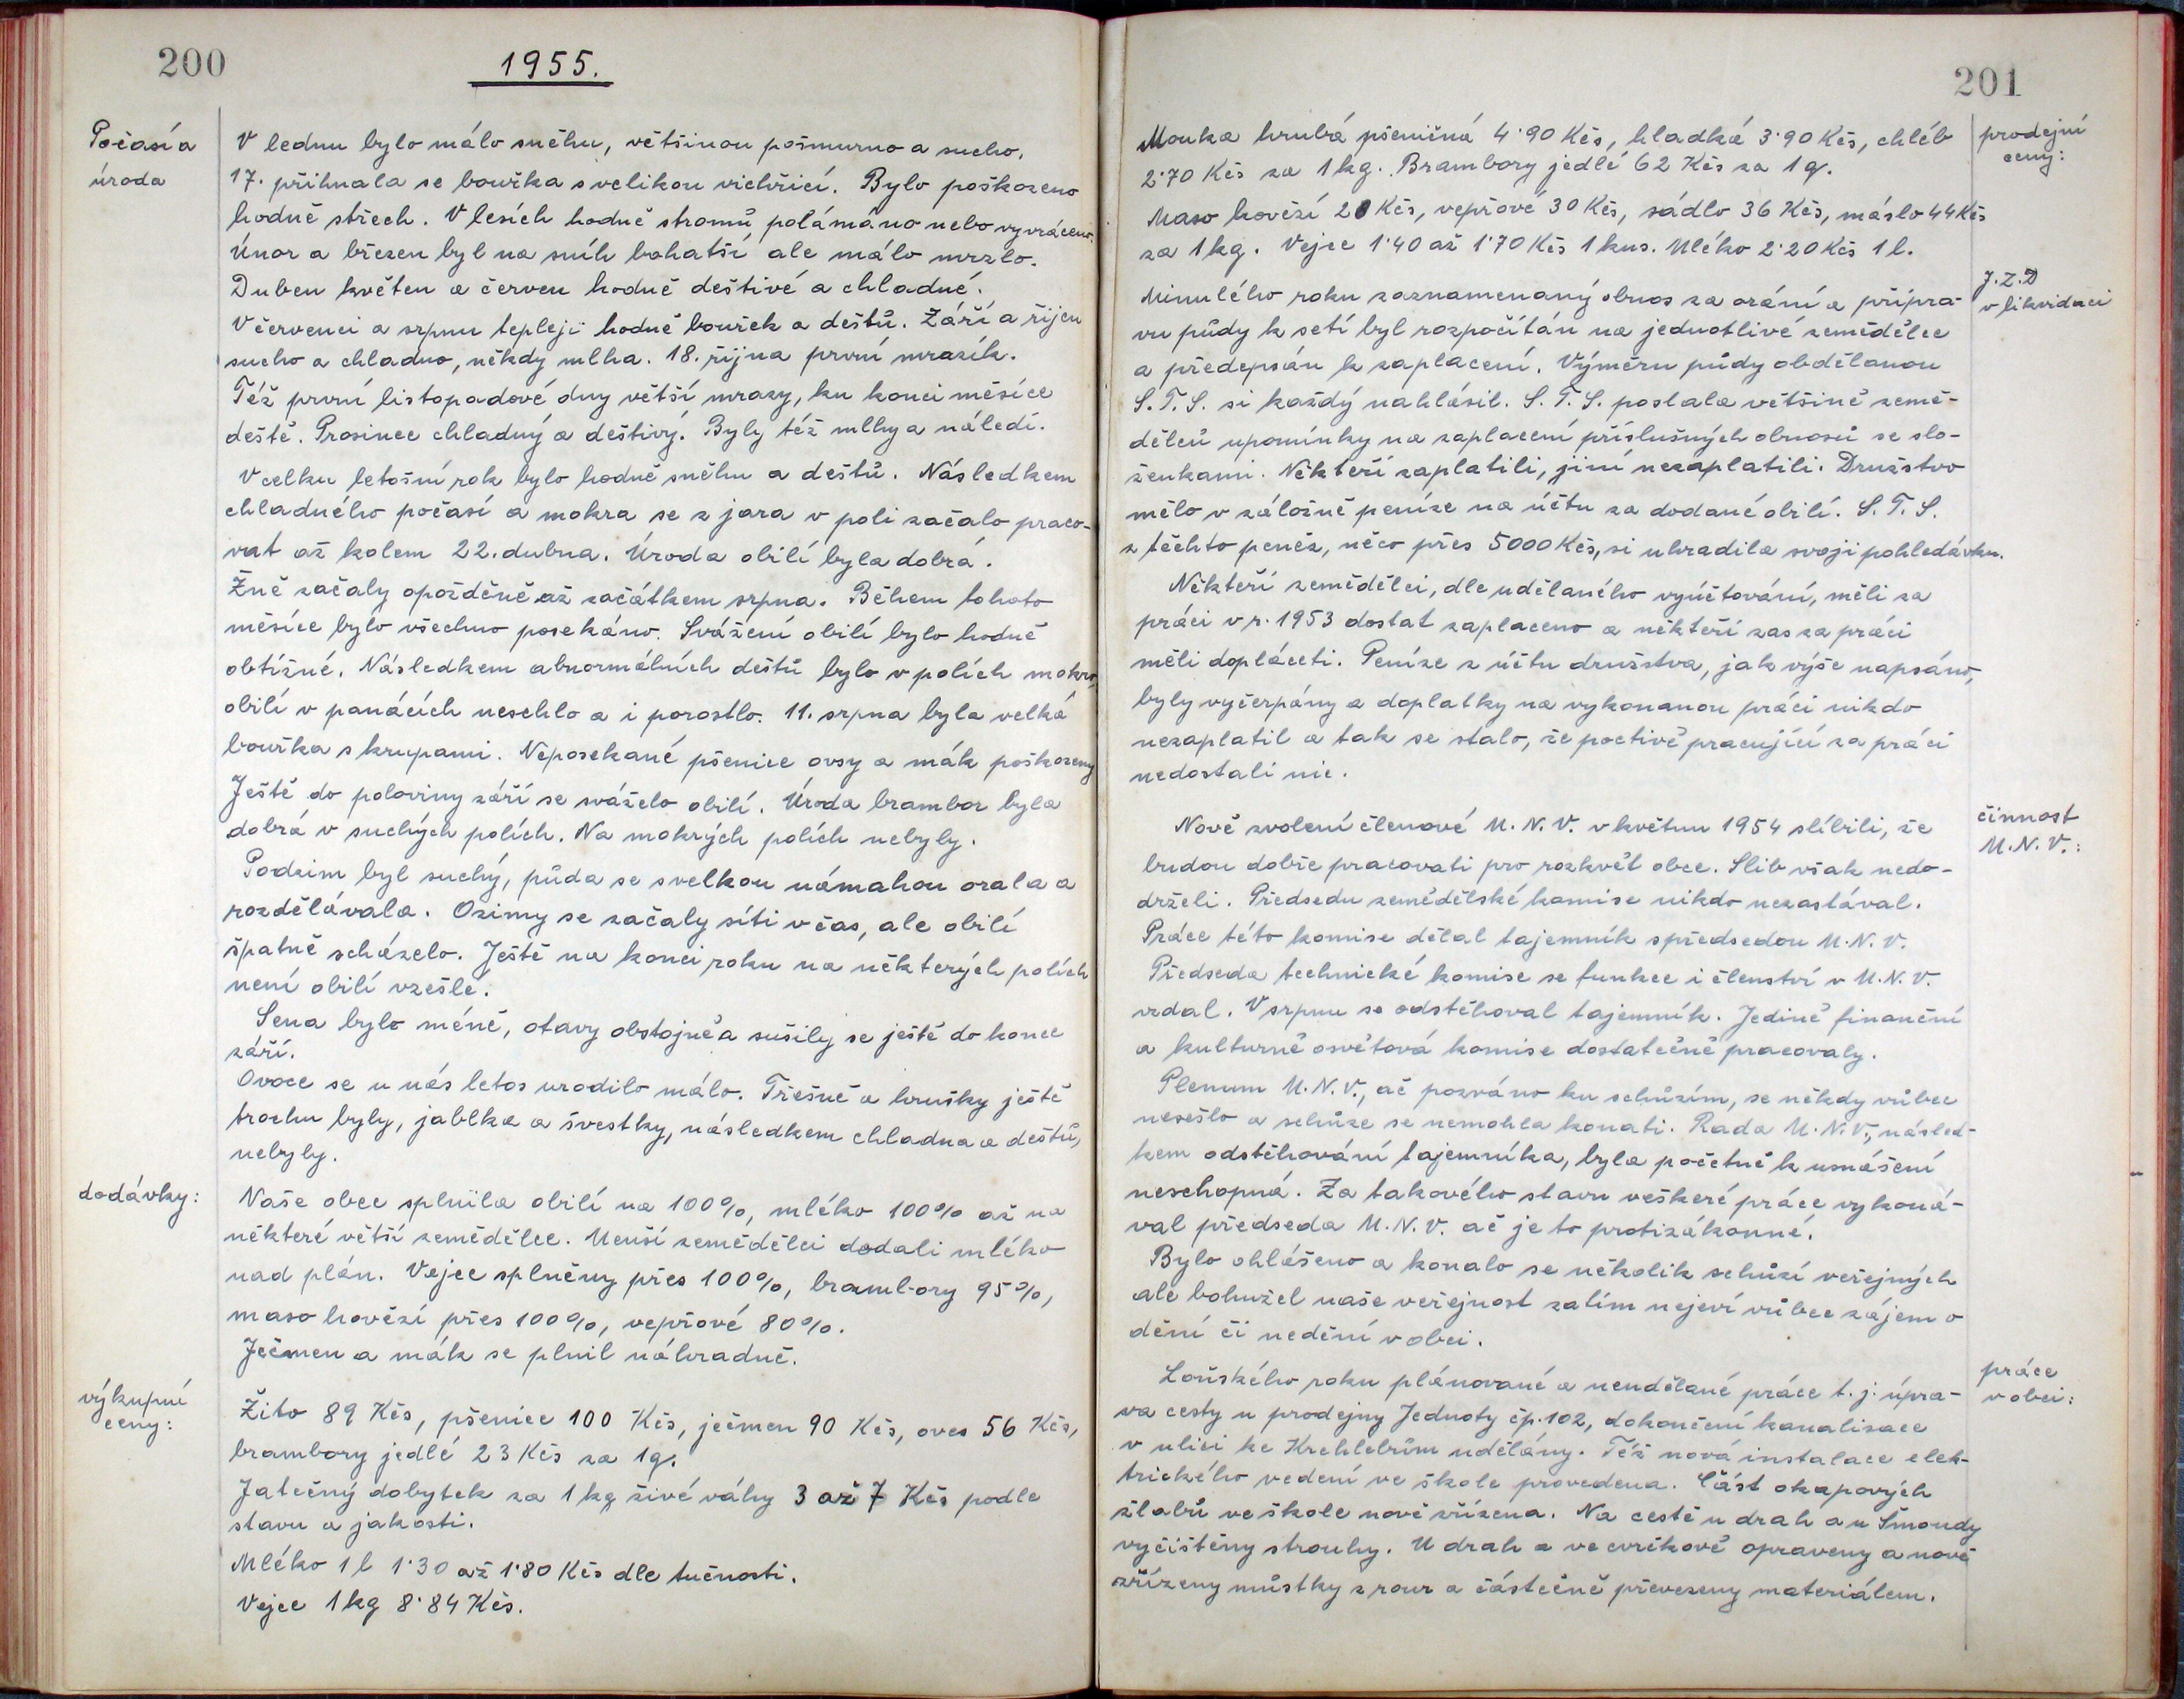 200
1955.
Počasí a
úroda
V lednu bylo málo sněhu, většinou pošmurno a sucho.
17. přihnala se bouřka s velikou vichřicí. Bylo poškozeno
hodně střech. V lesích hodně stromů polámáno nebo vyvráceno.
Únor a březen byl na sníh bohatší ale málo mrzlo.
Duben květen a červen hodně deštivé a chladné.
V červenci a srpnu tepleji hodně bouřek a deštů. Září a říjen
sucho a chladno, někdy mlha. 18. října první mrazík.
Též první listopadové dny větší mrazy, ku konci měsíce
deště. Prosinec chladný a deštivý. Byly též mlhy a náledí.
V celku letošní rok bylo hodně sněhu a deštů. Následkem
chladného počasí a mokra se z jara v poli začalo praco-
vat až kolem 22. dubna. Úroda obilí byla dobrá.
Žně začaly opožděně až začátkem srpna. Během tohoto
měsíce bylo všechno posekáno. Svážení obilí bylo hodně
obtížné. Následkem abnormálních deštů bylo v polích mokro,
obilí v panácích neschlo a i porostlo. 11. srpna byla velká
bouřka s krupami. Neposekané pšenice ovsy a mák poškozeny
Ještě do poloviny září se sváželo obilí. Úroda brambor byla
dobrá v suchých polích. Na mokrých polích nebyly.
Podzim byl suchý, půda se s velkou námahou orala a
rozdělávala. Ozimy se začaly síti včas, ale obilí
špatně scházelo. Ještě na konci roku na některých polích
není obilí vzešlé.
Sena bylo méně, otavy obstojně a sušily se ještě do konce
září.
Ovoce se u nás letos urodilo málo. Třešně a hrušky ještě
trochu byly, jablka a švestky, následkem chladna a deštů,
nebyly.
dodávky:
Naše obec splnila obilí na 100%, mléko 100% až na
některé větší zemědělce. Menší zemědělci dodali mléko
nad plán. Vejce splněny přes 100%, brambory 95%,
maso hovězí přes 100%, vepřové 80%.
Ječmen a mák se plnil náhradně.
výkupní
ceny:
Žito 89 Kčs, pšenice 100 Kčs, ječmen 90 Kčs, oves 56 Kčs,
brambory jedlé 23 Kčs za 1q.
Jatečný dobytek za 1 kg živé váhy 3 až 7 Kčs podle
stavu a jakosti.
Mléko 1 l 1˙30 až 1˙80 Kčs dle tučnosti.
Vejce 1 kg 8˙84 Kčs.
201
prodejní
ceny:
Mouka hrubá pšeničná 4˙90 Kčs, hladká 3˙90 Kčs, chléb
2˙70 Kčs za 1 kg. Brambory jedlé 62 Kčs za 1 q.
Maso hovězí Kčs, vepřové 30 Kčs, sádlo 36 Kčs, máslo 44 Kčs
za 1 kg. Vejce 1˙40 až 1˙70 Kčs 1 kus. Mléko 2˙20 Kčs 1 l.
J.Z.D
v likvidaci
Minulého roku zaznamenaný obnos za orání a přípra-
vu půdy k setí byl rozpočítán na jednotlivé zemědělce
a předepsán k zaplacení. Výměru půdy obdělanou
S.T.S. si každý nahlásil. S.T.S. poslala většině země-
dělců upomínky na zaplacení příslušných obnosů se slo-
ženkami. Někteří zaplatili, jiní nezaplatili. Družstvo
mělo v záložně peníze na účtu za dodané obilí. S.T.S.
z těchto peněz, něco přes 5000 Kčs, si uhradila svoji pohledávku.
Někteří zemědělci, dle udělaného vyúčtování, měli za
práci v r. 1953 dostat zaplaceno a někteří zas za práci
měli dopláceti. Peníze z účtu družstva, jak výše napsáno,
byly vyčerpány a doplatky na vykonanou práci nikdo
nezaplatil a tak se stalo, že poctivě pracující za práci
nedostali nic.
činnost
M.N.V.:
Nově zvolení členové M.N.V. v květnu 1954 slíbili, že
budou dobře pracovati pro rozkvět obce. Slib však nedo-
drželi. Předsedu zemědělské komise nikdo nezastával.
Práce této komise dělal tajemník s předsedou M.N.V.
Předseda technické komise se funkce i členství v M.N.V.
vzdal. V srpnu se odstěhoval tajemník. Jedině finanční
a kulturně osvětová komise dostatečně pracovaly.
Plenum M.N.V., ač pozváno ku schůzím, se někdy vůbec
nesešlo a schůze se nemohla konati. Rada M.N.V., násled-
kem odstěhování tajemníka, byla početně k usnášení
neschopná. Za takového stavu veškeré práce vykoná-
val předseda M.N.V. ač je to protizákonné.
Bylo ohlášeno a konalo se několik schůzí veřejných
ale bohužel naše veřejnost zatím nejeví vůbec zájem o
dění či nedění v obci.
práce
v obci:
Loňského roku plánované a neudělané práce t.j. úpra-
va cesty u prodejny Jednoty čp. 102, dokončení kanalisace
v ulici ke Krchlebům udělány. Též nová instalace elek-
trického vedení ve škole provedena. Část okapových
žlabů ve škole nově zřízena. Na cestě u drah a u Smoudy
vyčištěny strouhy. U drah a ve cvrčkově opraveny a nově
zřízeny můstky z rour a částečně převezeny materiálem.